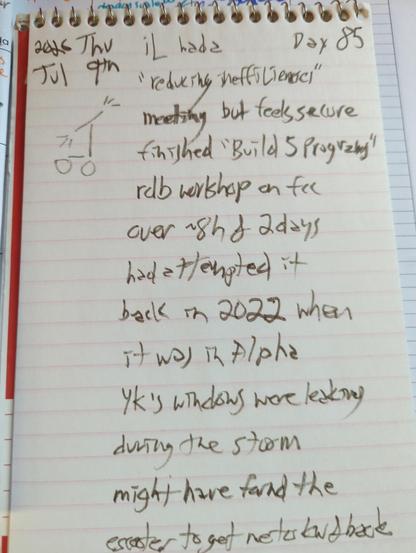 2026 Thu iL hada Day 85
Jul 9th "reducing inefficienci"
meeting but feels secure
finished "Build 5 Programs"
rdb workshop on fcc
over ~8h & 2days
had attempted it
back in 2022 when
it was in Alpha
YK's windows were leaking
during the storm
might have found the
escooter to get me to k and back